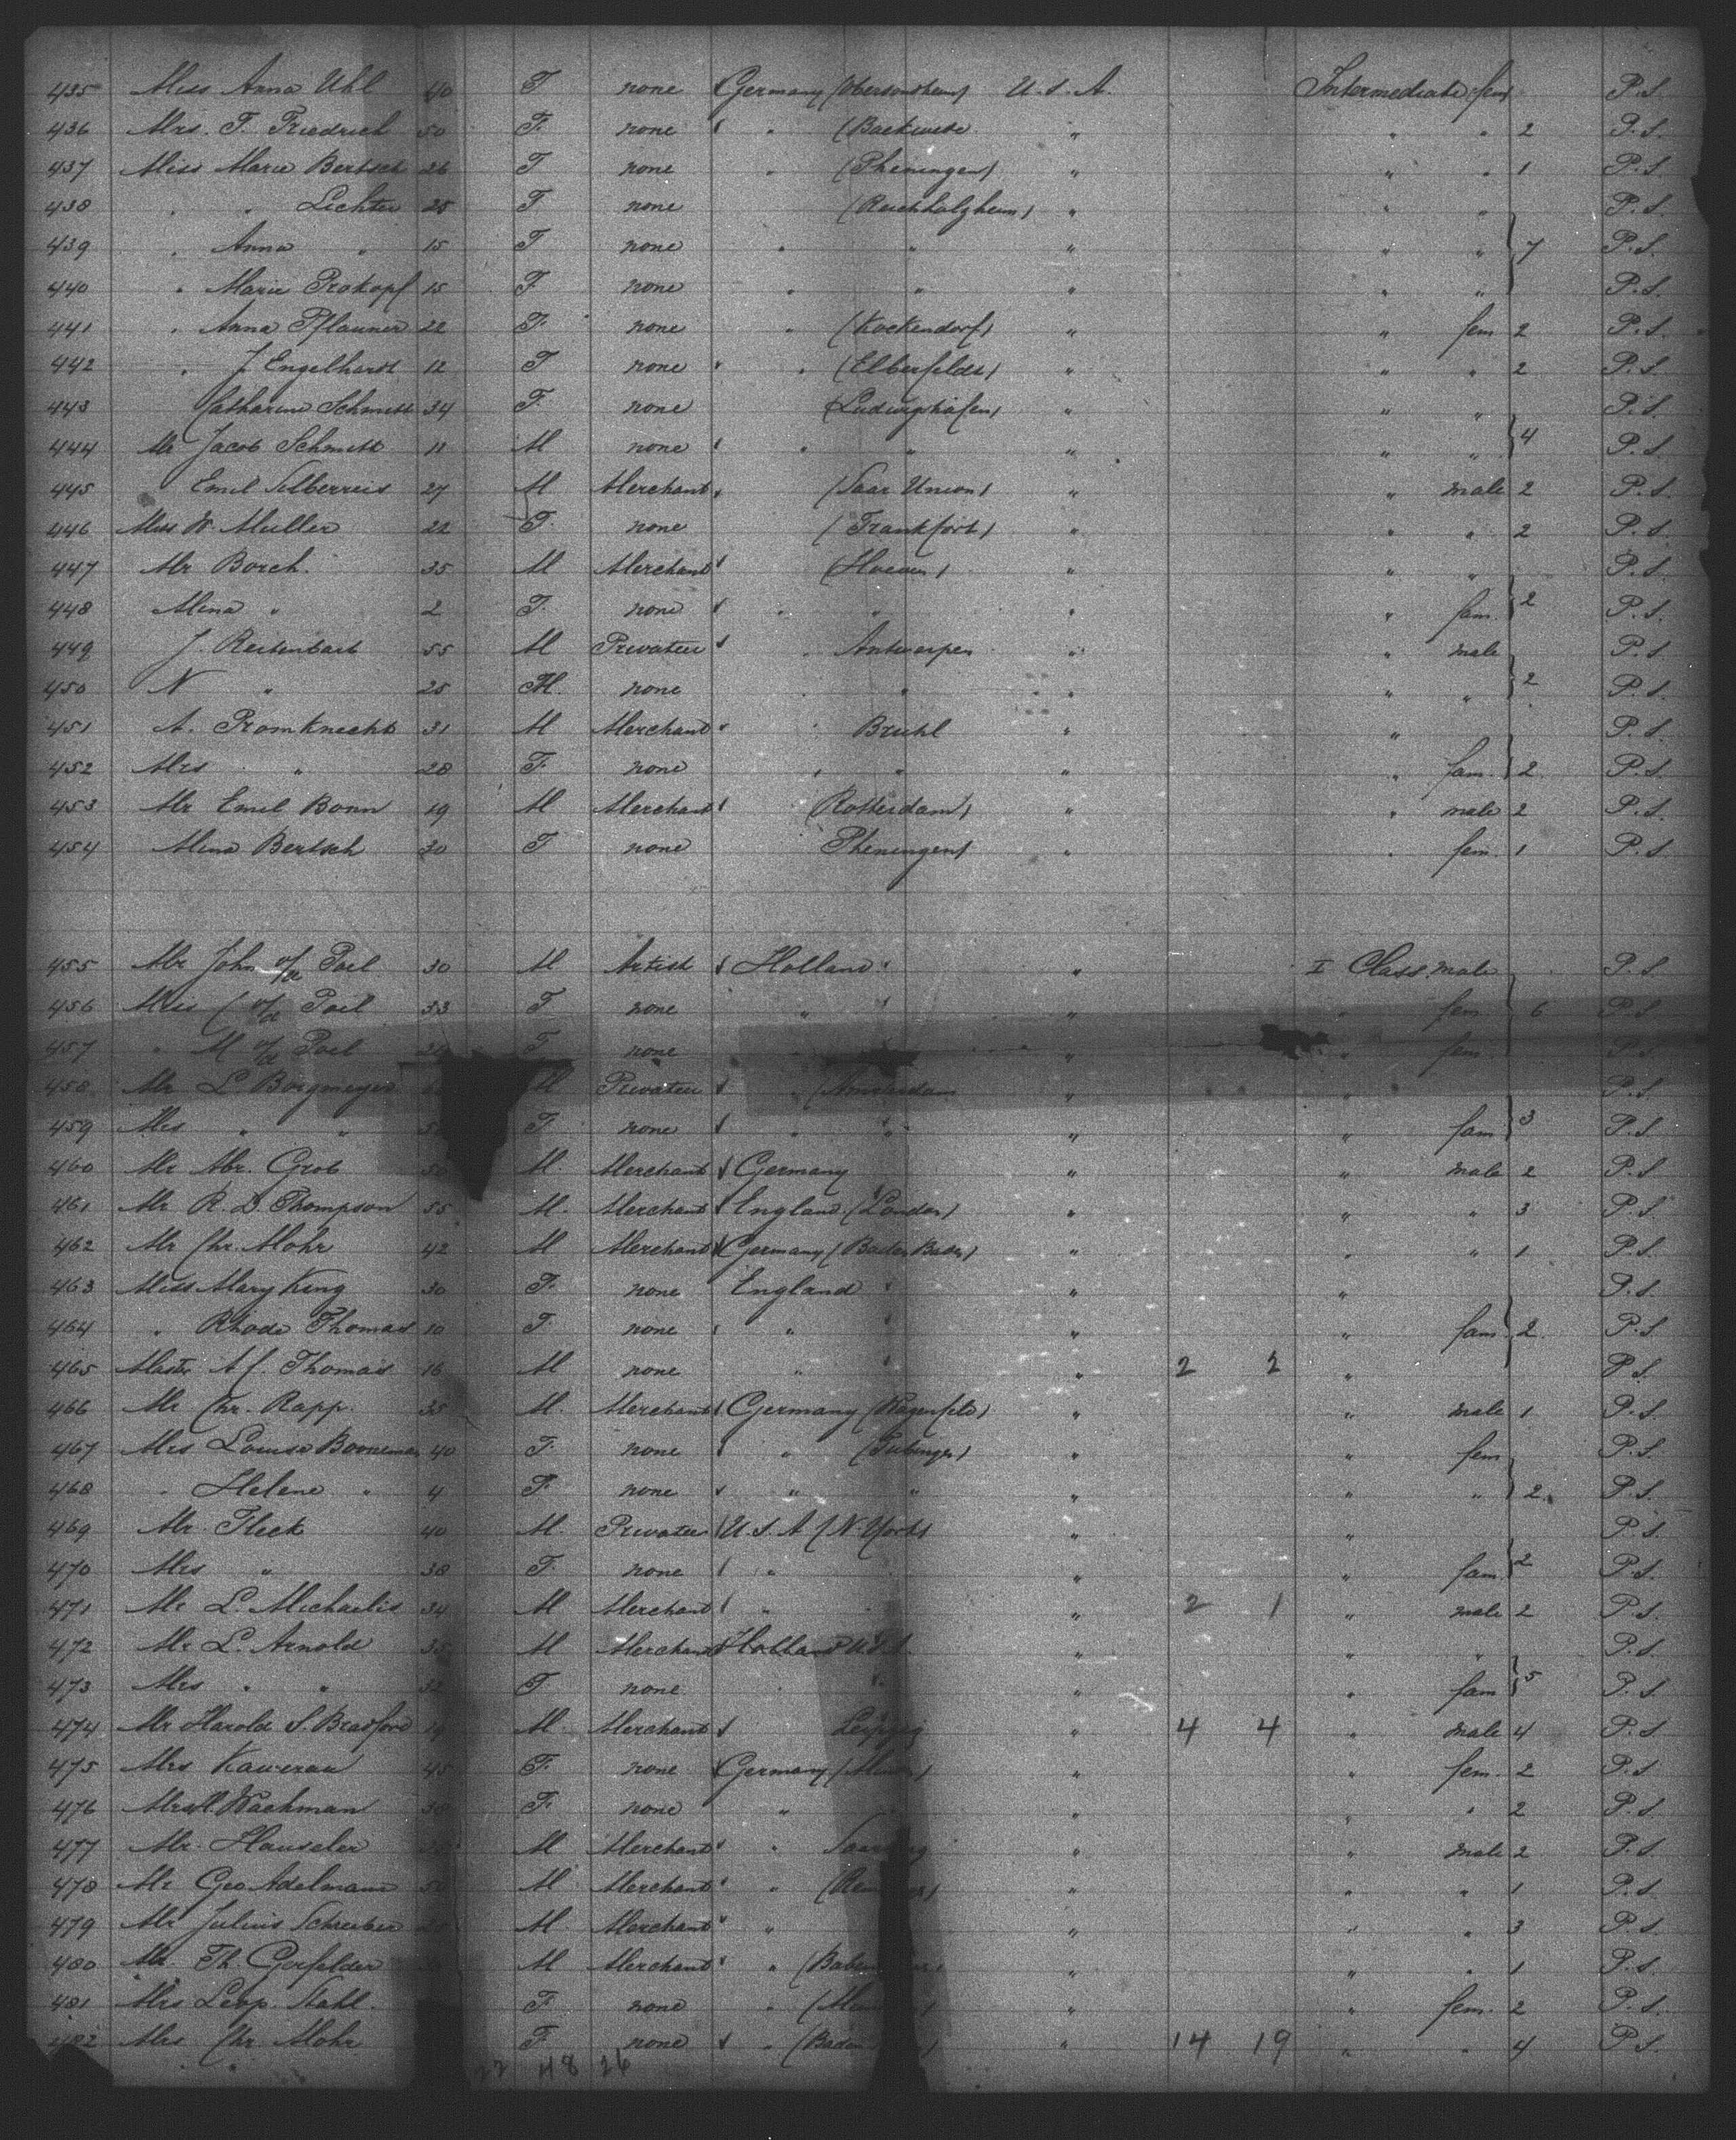 435 Miss Anna Uhl 40 F none Germany U.S.A. Intermediate fem P.S.
436 Mrs. F. Friedrich 50 F. none " (Backwede " " " 2 P.S.
437 Miss Marie Bertsch 26 F none " (Pheningen) " " " 1 P.S.
438 " " Lichter 25 F none (Reichholzheim) " " " P.S.
439 " Anna " 15 F none " " " " " } 7 P.S.
440 " Marie Prokopf 15 F none " " " " " P.S.
441 " Anna Pflauner 22 F. none " (Kockendorf) " " fem 2 P.S.
442 " J Engelhardt 12 F none " (Elberfelde) " " " 2 P.S.
443 Catharine Schmitt 34 F. none (Ludwigshafen) " " " P.S.
444 Mr Jacob Schmitt 11 M none " " " " " } 4 P.S.
445 Emil Silberreis 27 M Merchant (Saar Union) " " male 2 P.S.
446 Miss W. Muller 22 F. none (Frankfort) " " " 2 P.S.
447 Mr Borch. 35 M Merchant " " " P.S.
448 Mina " 2 F. none " " " " fam. } 2 P.S.
449 J. 55 M Privatier " Antwerpen " " male P.S.
450 N " 25 M. none " " " " " } 2 P.S.
451 A. Fromknecht 31 M Merchant " Bruhl " " P.S.
452 Mrs " 28 F. none " " " " fam. } 2. P.S.
453 Mr Emil Bonn 19 M Merchant (Rotterdam) " " male 2 P.S.
454 Mina Bertsch 20 F none Pheningen) " " fem. 1 P.S.
455 Mr John v/d Poel 30 M Artist Holland " I Class male P.S.
456 Miss C v/d Poel 33 F none " " " fem. } 6 P.S.
457 " M v/d Poel F none " " " fem. P.S.
458 Mr L Borgmeyer M Privatier " (Amsterdam " " P.S.
459 Mrs " " F none " " " " fam } 3 P.S.
460 Mr Abr. Grob 50 M. Merchant Germany " " male 2 P.S.
461 Mr R. D. Thompson 55 M. Merchant England (London) " " " 3 P.S.
462 Mr Chr. Mohr 42 M Merchant Germany (Baden Baden) " " " 1 P.S.
463 Miss Mary King 30 F. none England " " P.S.
464 " Rhode Thomas 10 F. none " " " fam. } 2. P.S.
465 Master A C. Thomas 16 M none " " 2 2 " P.S.
466 Mr Chr. Rapp. 35 M. Merchant Germany (Hagenfeld) " " male 1 P.S.
467 Mrs Louise Booneman 40 F. none " (Tubingen) " " fem P.S.
468 " Helene " 4 F. none " " " " " } 2. P.S.
469 Mr. Fleck 40 M. Privatier U.S.A (N. York) " " P.S.
470 Mrs " 38 F. none " " " fam. } 2 P.S.
471 Mr L. Michaelis 34 M Merchant " " 2 1 " male 2 P.S.
472 Mr L. Arnold 35 M Merchant Holland U.S.A. " " " P.S.
473 Mrs " " 32 F none " " " fam } 5 P.S.
474 Mr Harold S. Bradford 19 M. Merchant Leipzig " 4 4 " male 4 P.S.
475 Mrs Kawerau 45 F. none Germany " " fem. 2 P.S.
476 Mrs H. Wachman 30 F. none " " " " 2 P.S.
477 Mr. Hauseler M Merchant " " " male 2 P.S.
478 Mr Geo Adelmann 50 M Merchant " " " " 1 P.S.
479 Mr Julius Schreiber M. Merchant " " " " 3 P.S.
480 Mr. Th. Gerfelder M Merchant " " " " 1 P.S.
481 Mrs Leop. Stahl. F. none " " " fem. 2 P.S.
482 Mrs Chr Mohr F. none " (Baden " 14 19 " " 4 P.S.
22 48 26